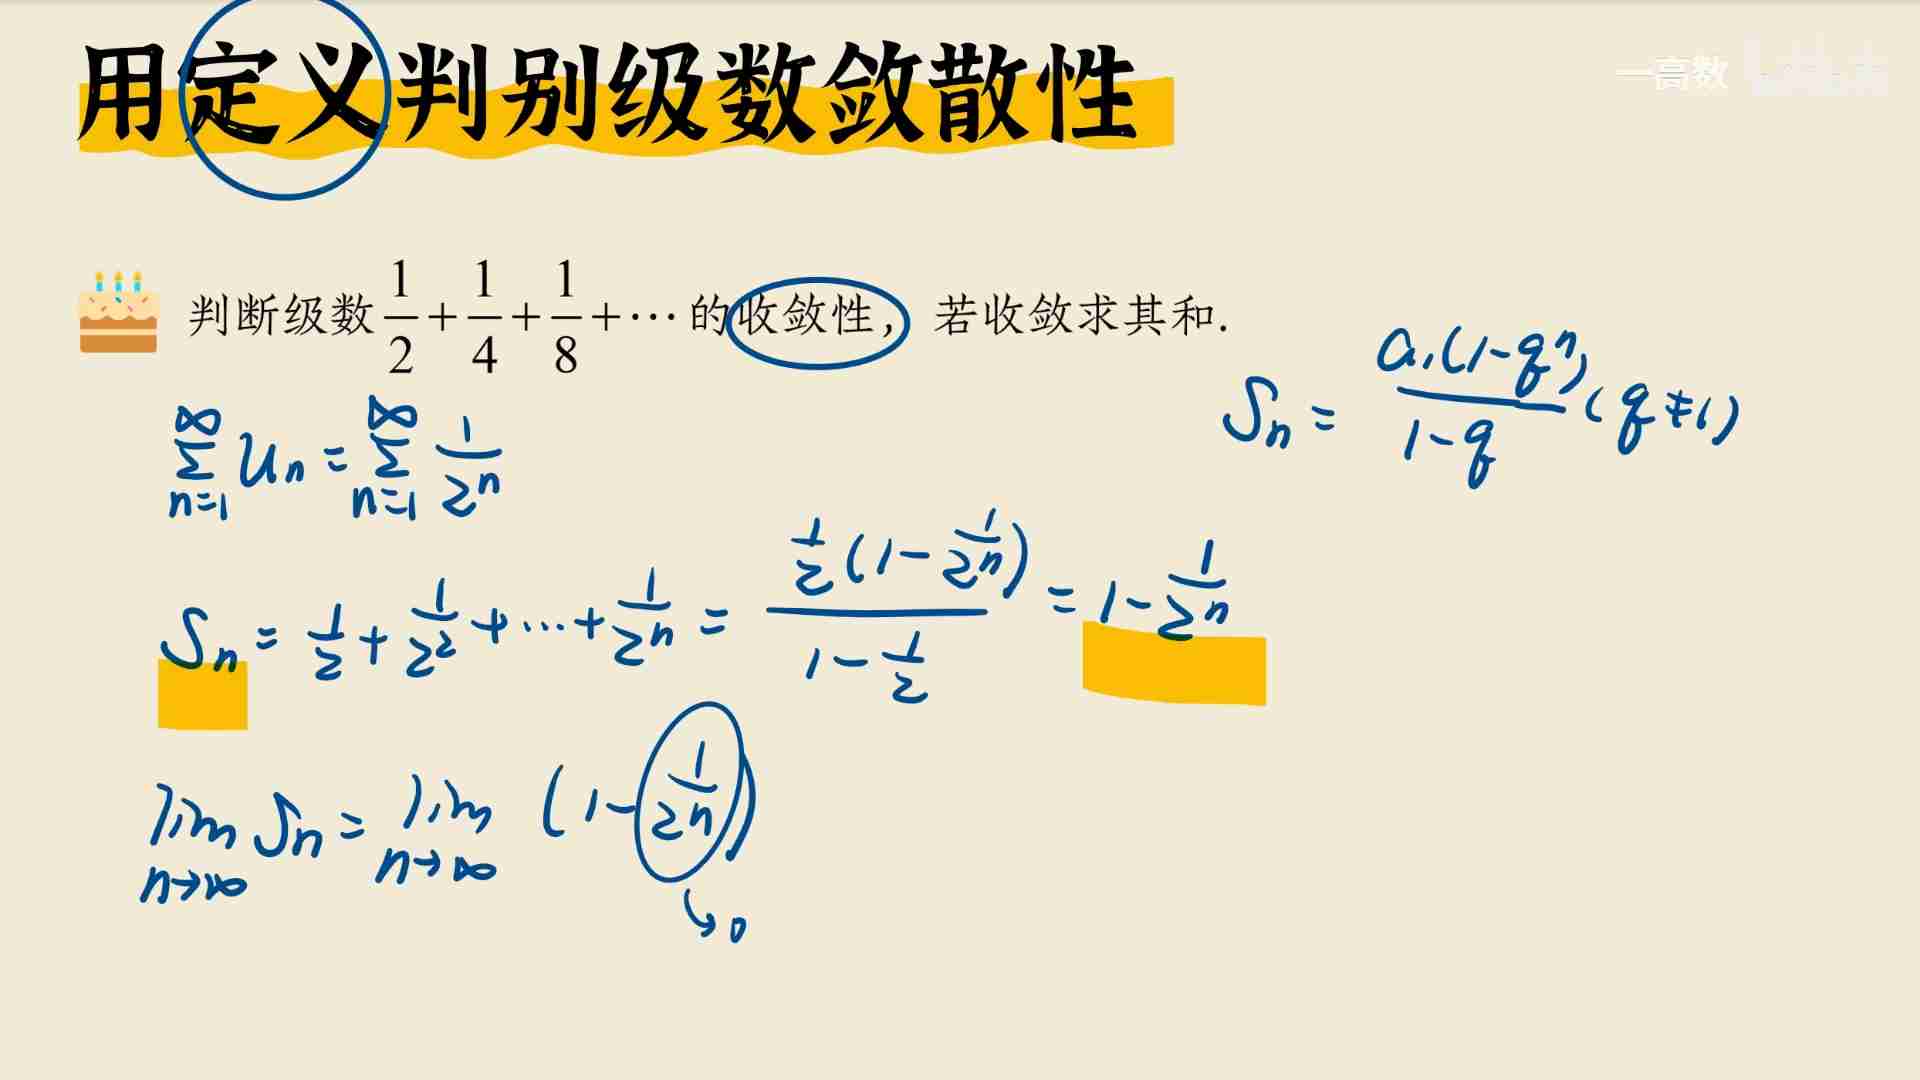 用定义判别级数敛散性
一高数
判断级数 1/2 + 1/4 + 1/8 + ⋯ 的收敛性，若收敛求其和.
Sn = a₁(1-qⁿ)/(1-q) (q≠1)
∑_{n=1}^{∞} uₙ = ∑_{n=1}^{∞} 1/2ⁿ
Sn = 1/2 + 1/2² + ⋯ + 1/2ⁿ = 1/2(1-1/2ⁿ)/(1-1/2) = 1-1/2ⁿ
lim_{n→∞} Sn = lim_{n→∞} (1-1/2ⁿ)
↘0